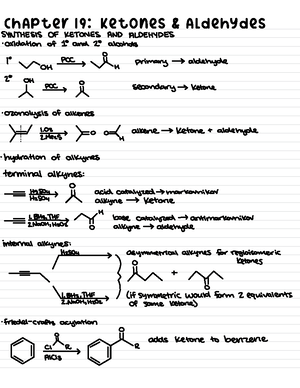 CHAPTER 19: KETONES & ALDEHYDES
SYNTHESIS OF KETONES AND ALDEHYDES
·oxidation of 1° and 2° alcohols
1° OH PCC O H primary → aldehyde
2° OH PCC O secondary → ketone
·ozonolysis of alkenes
1.O3 2.Me2S O O H alkene → ketone + aldehyde
·hydration of alkynes
terminal alkynes:
H2SO4 HgSO4 O acid catalyzed → markovnikov
alkyne → ketone
1.BH3,THF 2.NaOH,H2O2 O H base catalyzed → antimarkovnikov
alkyne → aldehyde
internal alkynes:
H2SO4 asymmetrical alkynes for regioisomeric
ketones
O + O
1.BH3,THF 2.NaOH,H2O2 (if symmetric would form 2 equivalents
of same ketone)
·friedel-crafts acylation
O Cl R AlCl3 O R adds ketone to benzene